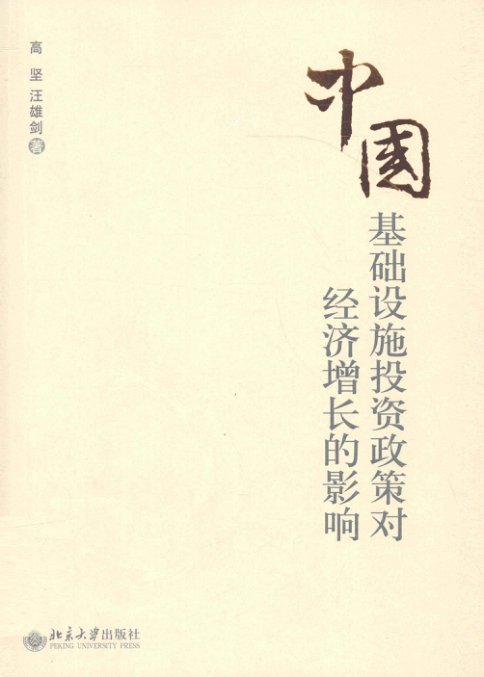 中国
基础设施投资政策对
经济增长的影响
高 坚 汪雄剑 著
北京大学出版社
PEKING UNIVERSITY PRESS